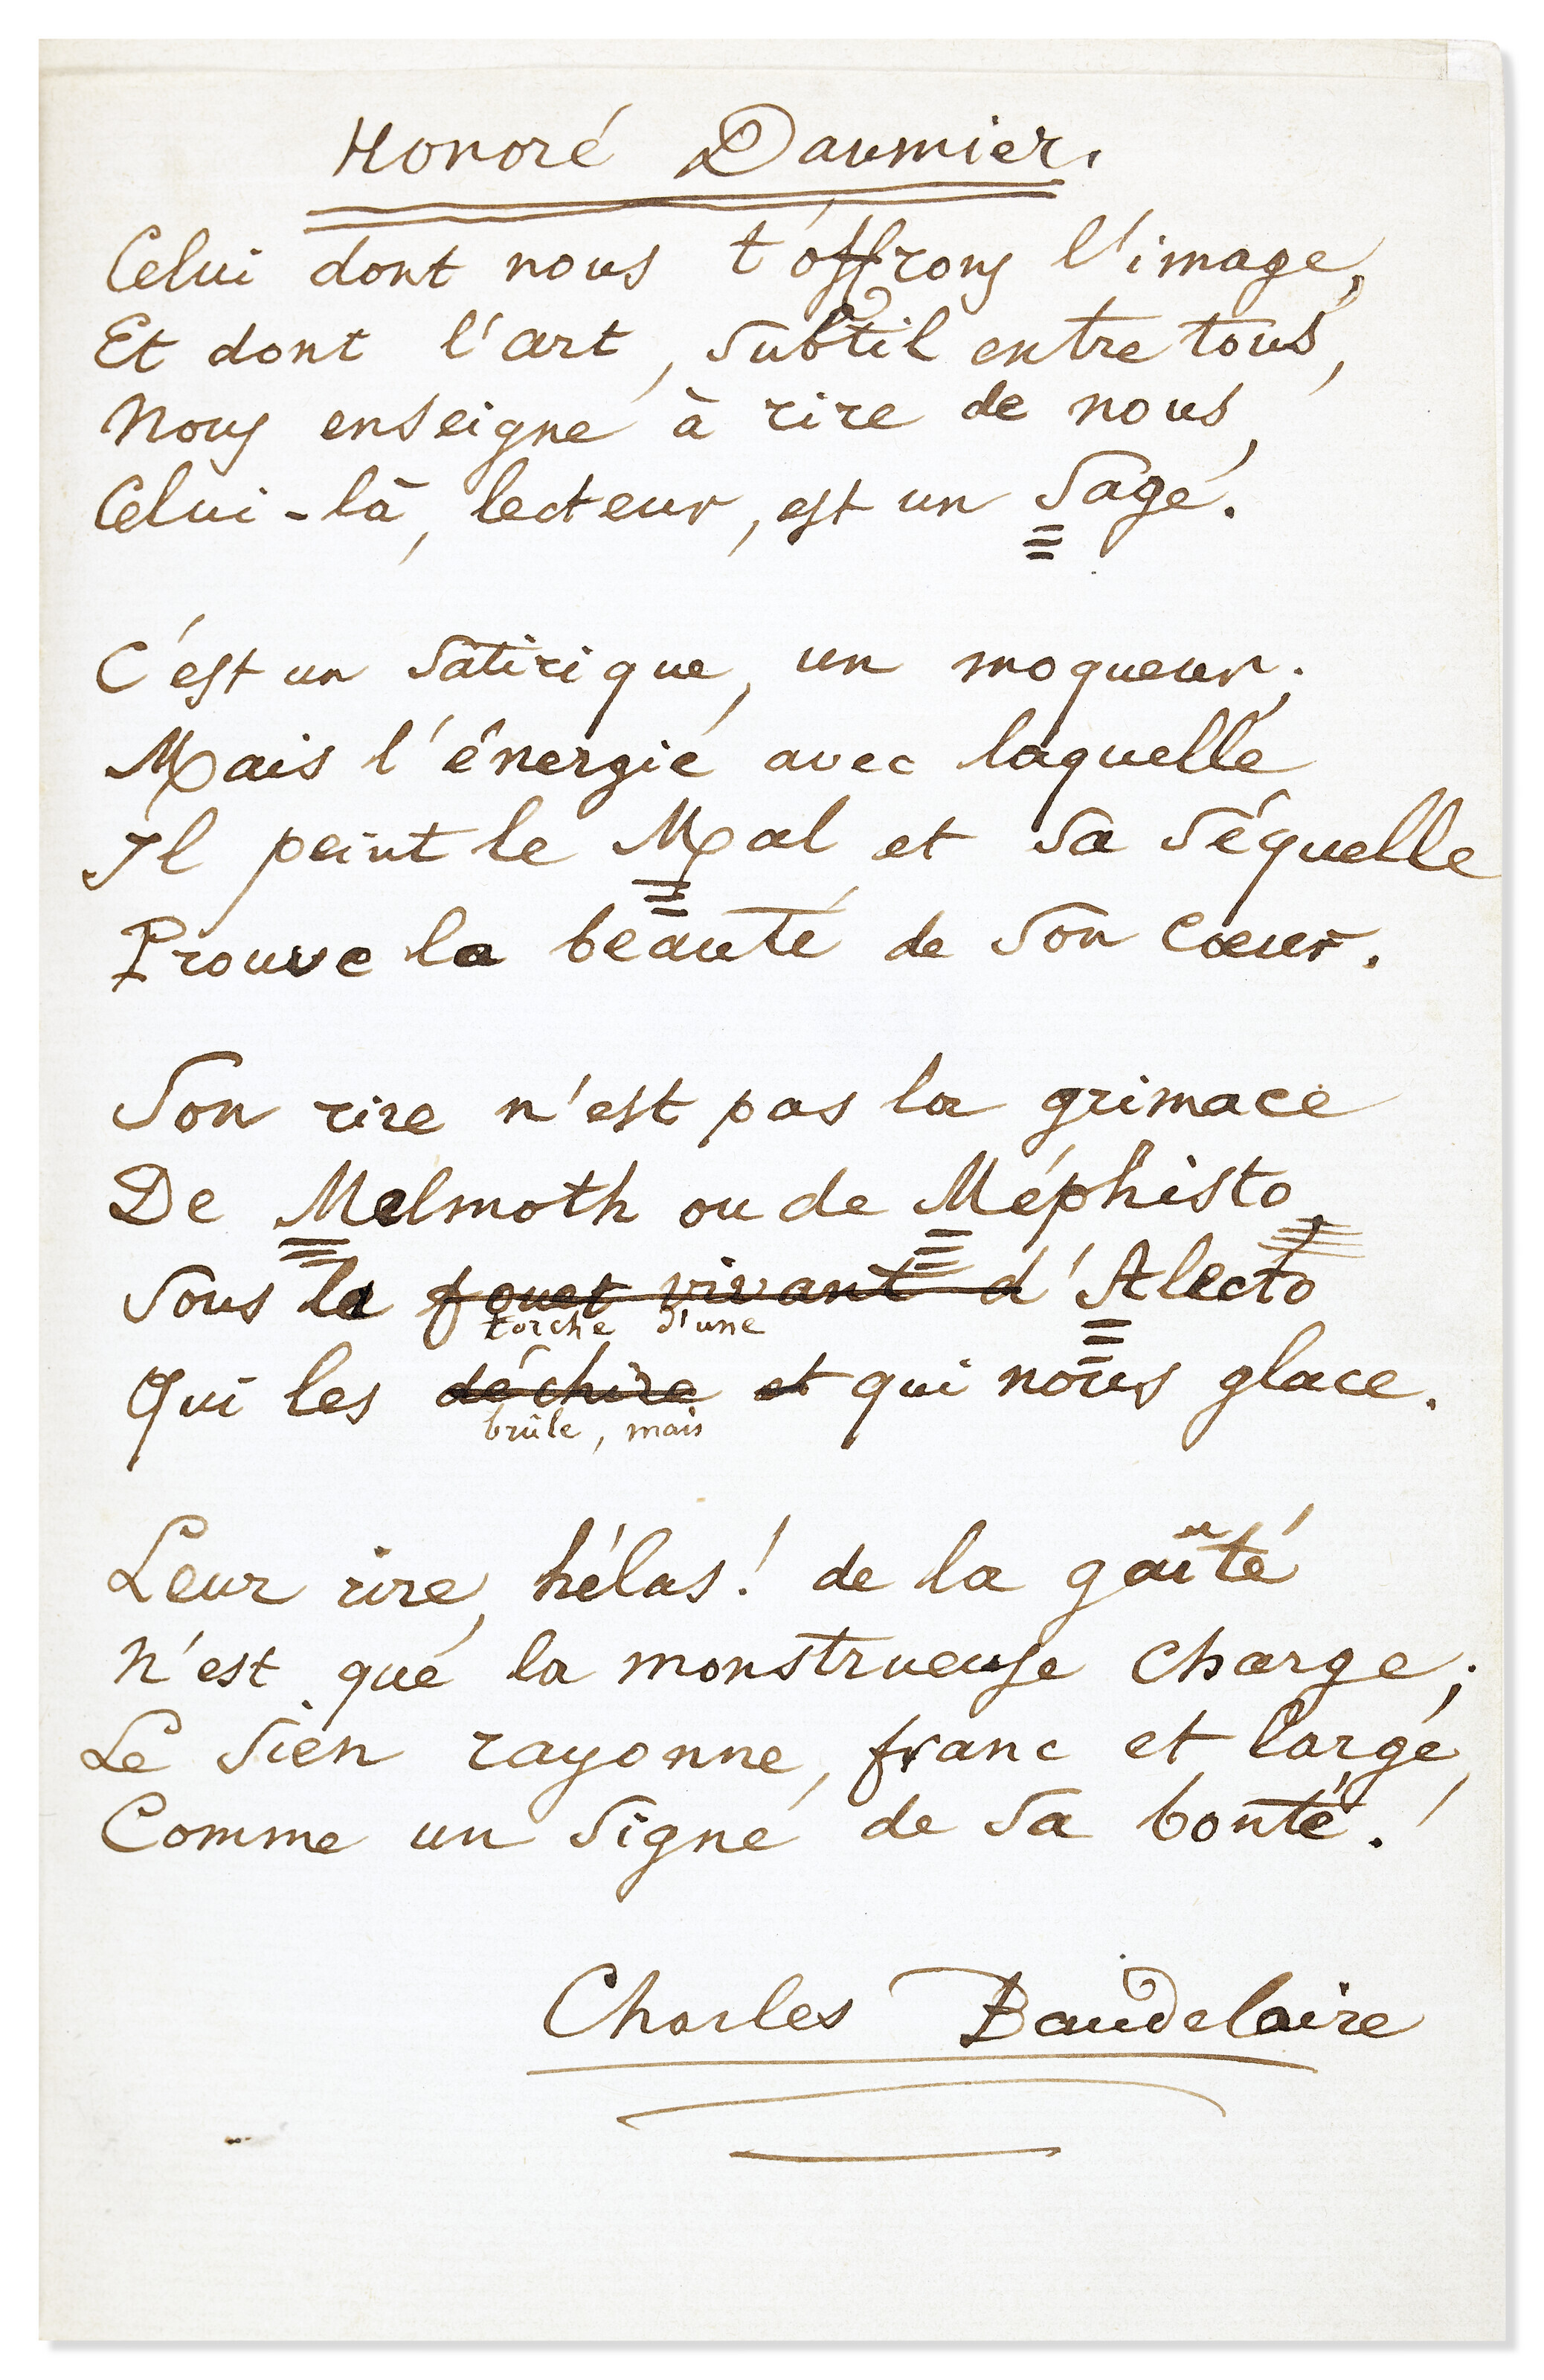 Honoré Daumier.
Celui dont nous t'offrons l'image,
Et dont l'art, subtil entre tous,
Nous enseigne à rire de nous,
Celui-là, lecteur, est un Sage.
C'est un satirique, un moqueur;
Mais l'énergie avec laquelle
Il peint le Mal et sa séquelle
Prouve la beauté de son cœur.
Son rire n'est pas la grimace
De Melmoth ou de Méphisto,
Sous la fouet vivant d'Alecto
torche d'une
Qui les déchire et qui nous glace.
brûle, mais
Leur rire, hélas! de la gaîté
N'est que la monstrueuse charge;
Le sien rayonne, franc et large,
Comme un signe de sa bonté!
Charles Baudelaire